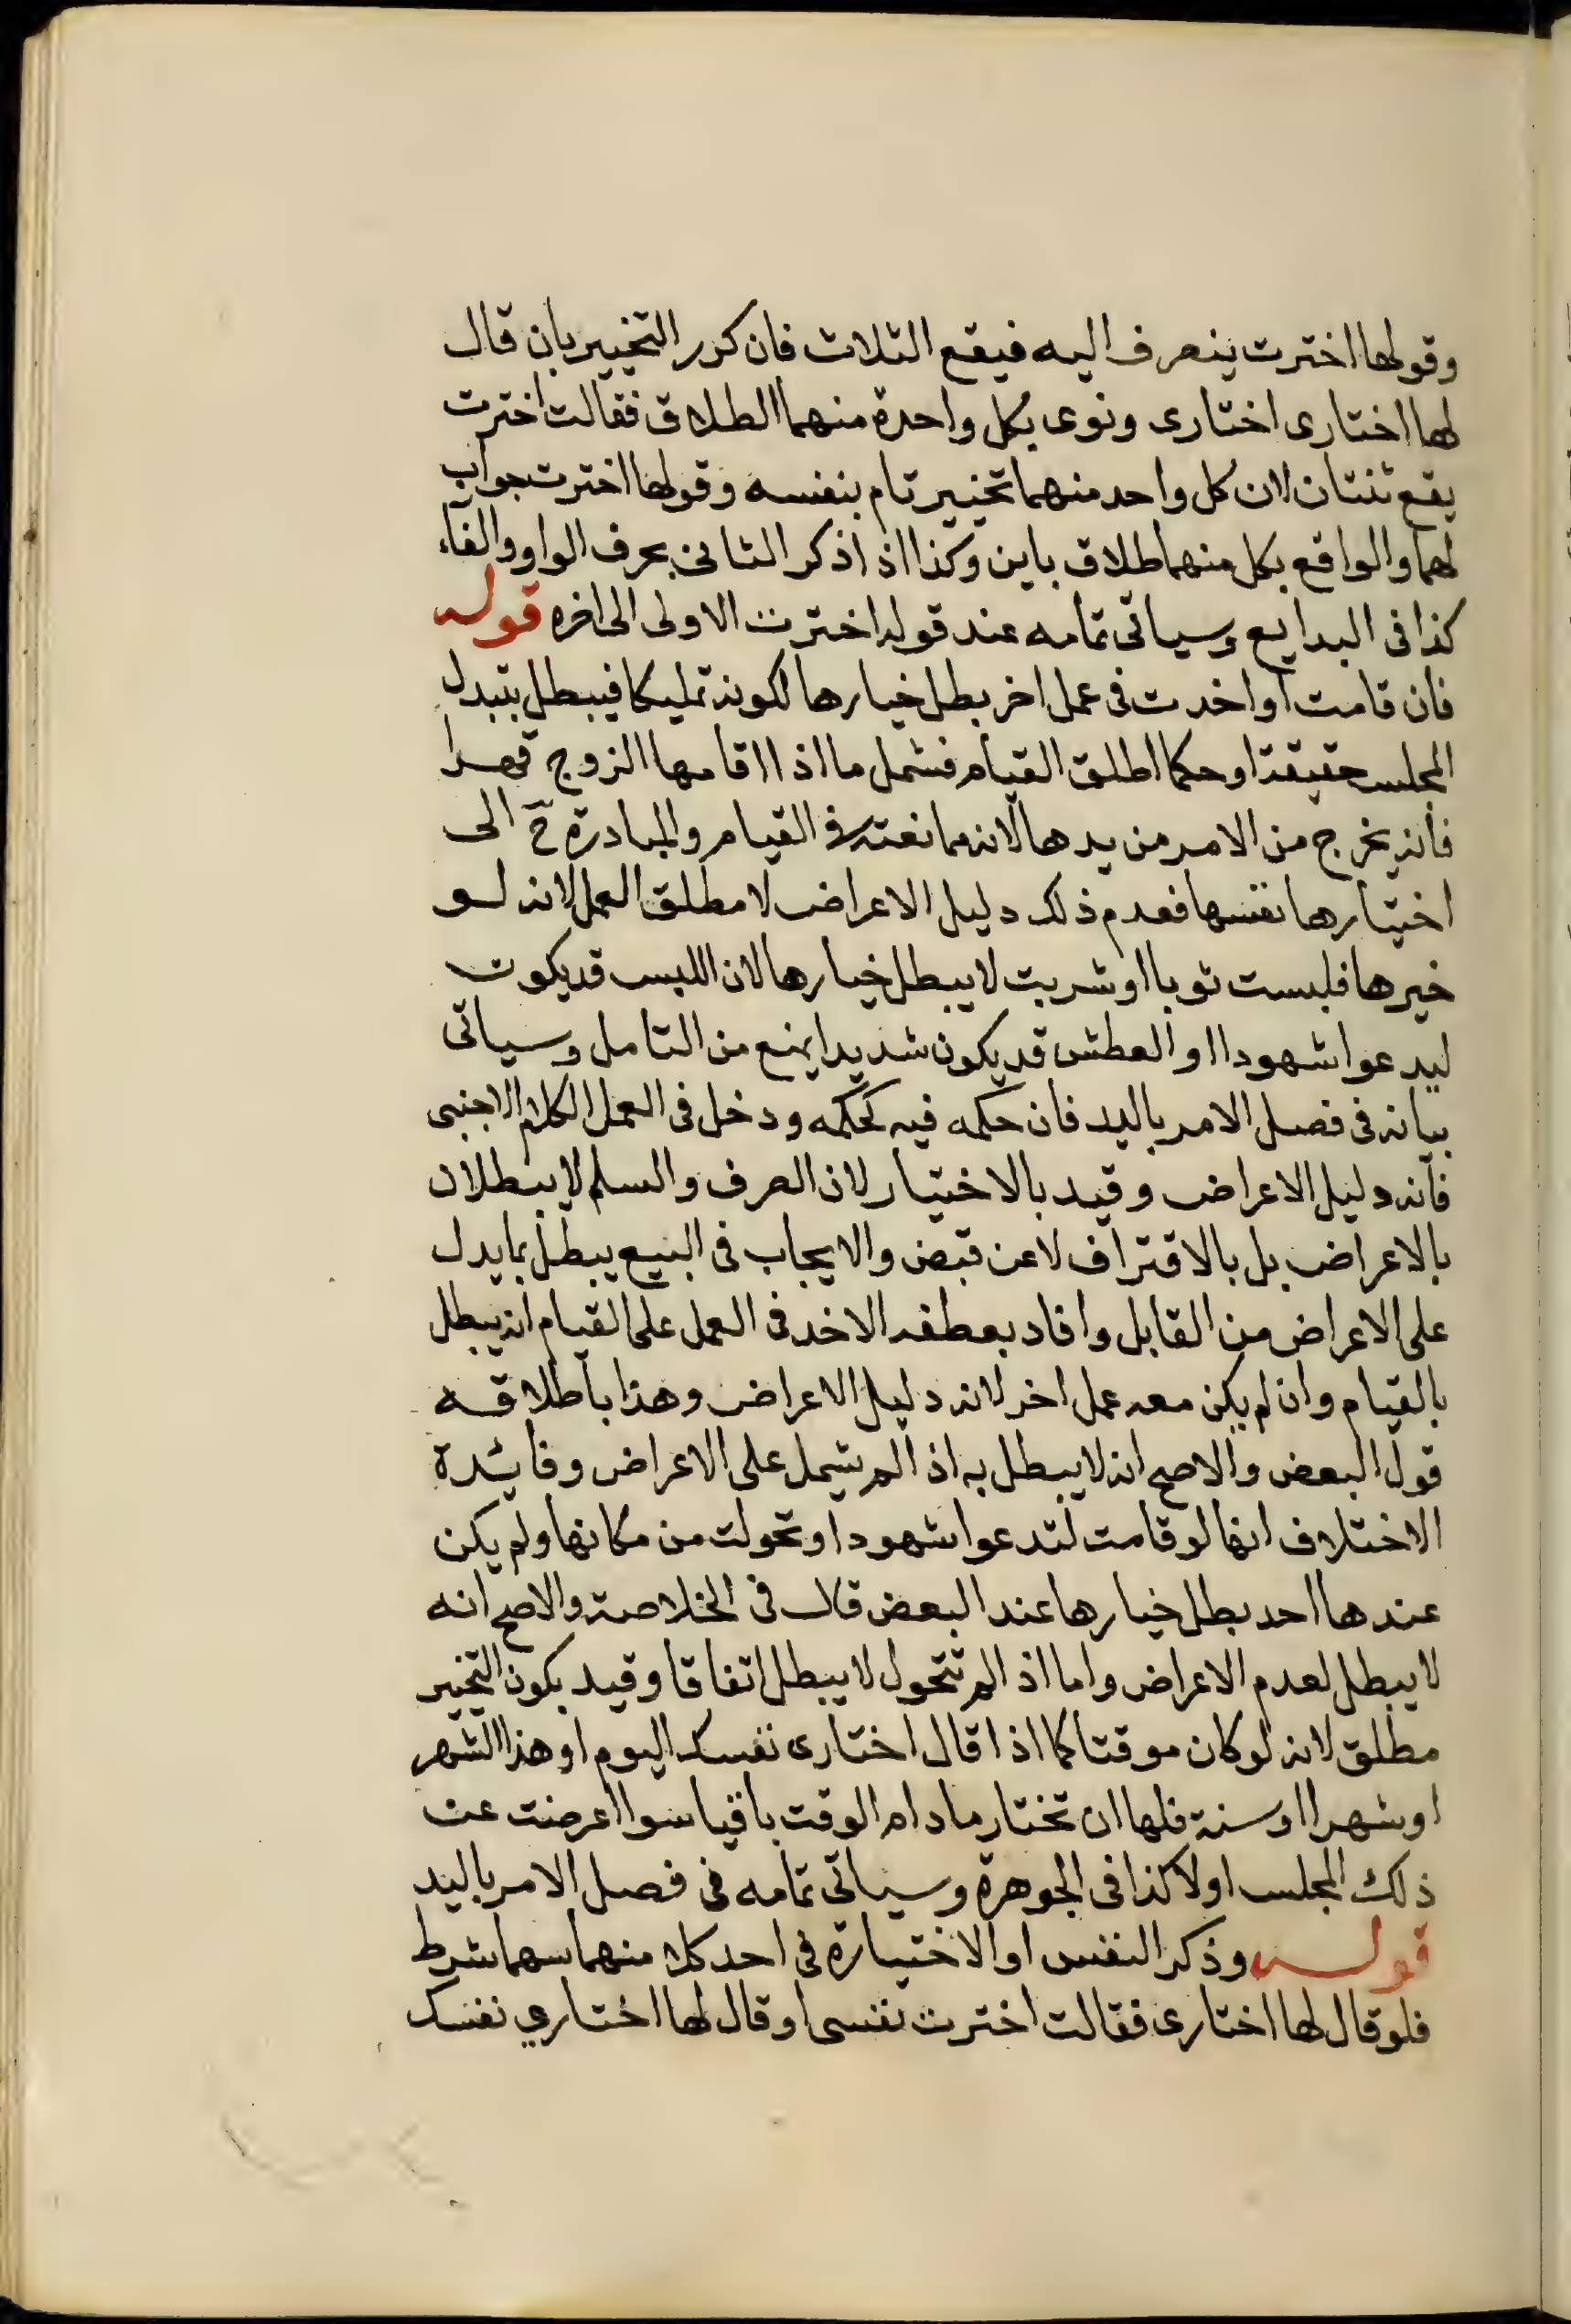 وقولها اخترت ينصرف اليه فيقع الثلاث فان كرر التخيير بان قال
لها اختارى اختارى ونوى بكل واحدة منهما الطلاق فقالت اخترت
يقع ثنتان لان كل واحد منهما تخيير تام بنفسه وقولها اخترت جواب
لهما والواقع بكل منهما طلاق باين وكذا اذا ذكر الثانى بحرف الواو والفاء
كذا فى البدايع وسياتى تمامه عند قوله اخترت الاولى الى اخره قوله
فان قامت او اخدت فى عمل اخر بطل خيارها لكونه تمليكا فيبطل بتبدل
المجلس حقيقة او حكما اطلق القيام فشمل ما اذا اقامها الزوج قهرا
فانه يخرج من الامر من يدها لانه ممانعته فى القيام والمبادرة ح الى
اختيارها نفسها فعدم ذلك دليل الاعراض لا مطلق العمل لانه لو
خيرها فلبست ثوبا او شربت لا يبطل خيارها لان اللبس قد يكون
ليدعوا شهودا او العطش قد يكون شديدا يمنع من التامل وسياتى
بيانه فى فصل الامر باليد فان حكمه فيه كحكمه ودخل فى العمل الكلام الاجنبى
فانه دليل الاعراض وقيد بالاختيار لان الصرف والسلم لا يبطلان
بالاعراض بل بالاقتراف لا عن قبض والايجاب فى البيع يبطل بما يدل
على الاعراض من القابل وافاد بعطفه الاخد فى العمل على القيام انه يبطل
بالقيام وان لم يكن معه عمل اخر لانه دليل الاعراض وهذا باطلاقه
قول البعض والاصح انه لا يبطل به اذا لم يشمل على الاعراض وفائدة
الاختلاف انها لو قامت لتدعوا شهودا وتحولت من مكانها ولم يكن
عندها احد بطل خيارها عند البعض قال فى الخلاصة والاصح انه
لا يبطل لعدم الاعراض واما اذا لم تتحول لا يبطل اتفاقا وقيد بكون التخيير
مطلق لانه لو كان موقتا كما اذا قال اختارى نفسك اليوم او هذا الشهر
او شهرا او سنة فلها ان تختار مادام الوقت باقيا سوا اعرضت عن
ذلك المجلس اولا كذا فى الجوهرة وسياتى تمامه فى فصل الامر باليد
قوله وذكر النفس او الاختيارة فى احد كلا منهما سهما شرط
فلو قال لها اختارى فقالت اخترت نفسى او قال لها اختاري نفسك